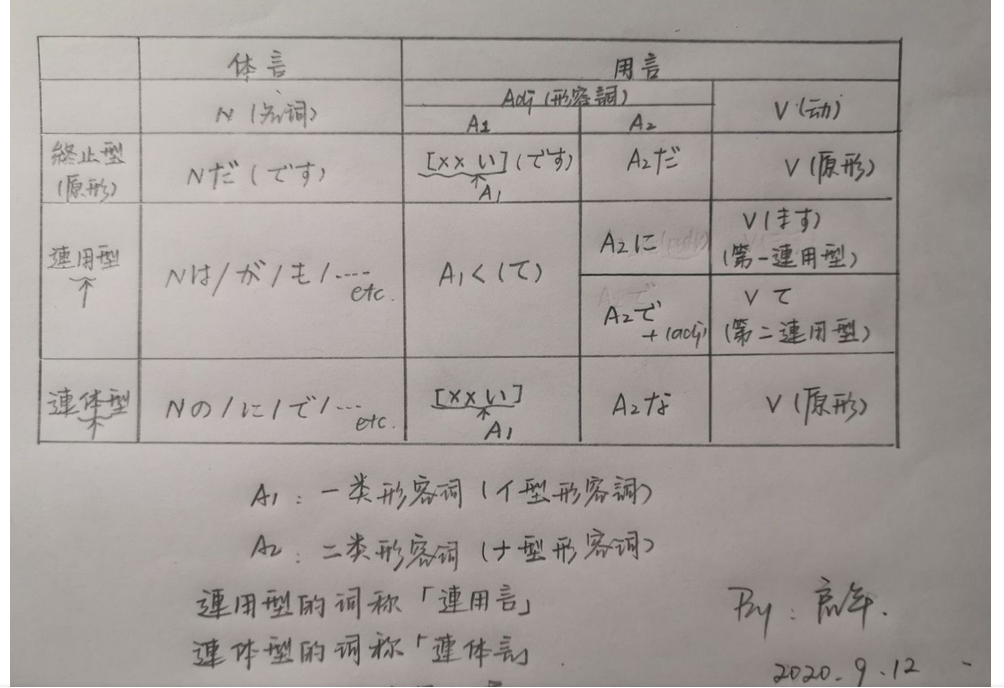 体言 用言
N (名词) Adj (形容詞) V (动)
A1 A2
終止型 Nだ (です) [××い] (です) A2だ V (原形)
(原形) A1
連用型 Nは/が/も/…… etc. A1く (て) A2に V (ます)
(第一連用型)
A2で V て
+ (adj) (第二連用型)
連体型 Nの/に/で/…… etc. [××い] A2な V (原形)
A1
A1：一类形容词 (イ型形容詞)
A2：二类形容词 (ナ型形容词)
連用型的词称「連用言」
連体型的词称「連体言」
By：
2020.9.12